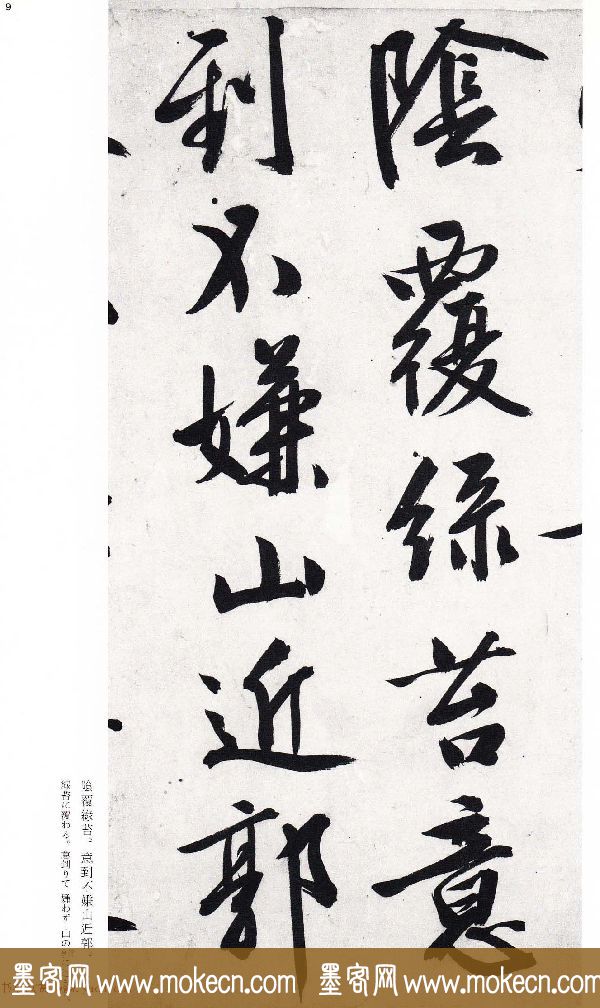 9
陰覆綠苔意
到不嫌山近郭
陰覆緑苔。意到不嫌山近郭。
緑苔に覆わる。意到りて嫌わず山の
墨客网 www.mokecn.com 墨客网 www.mokecn.com